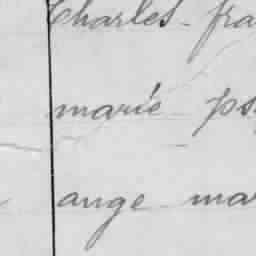 Charles fra
marié ps
ange mar